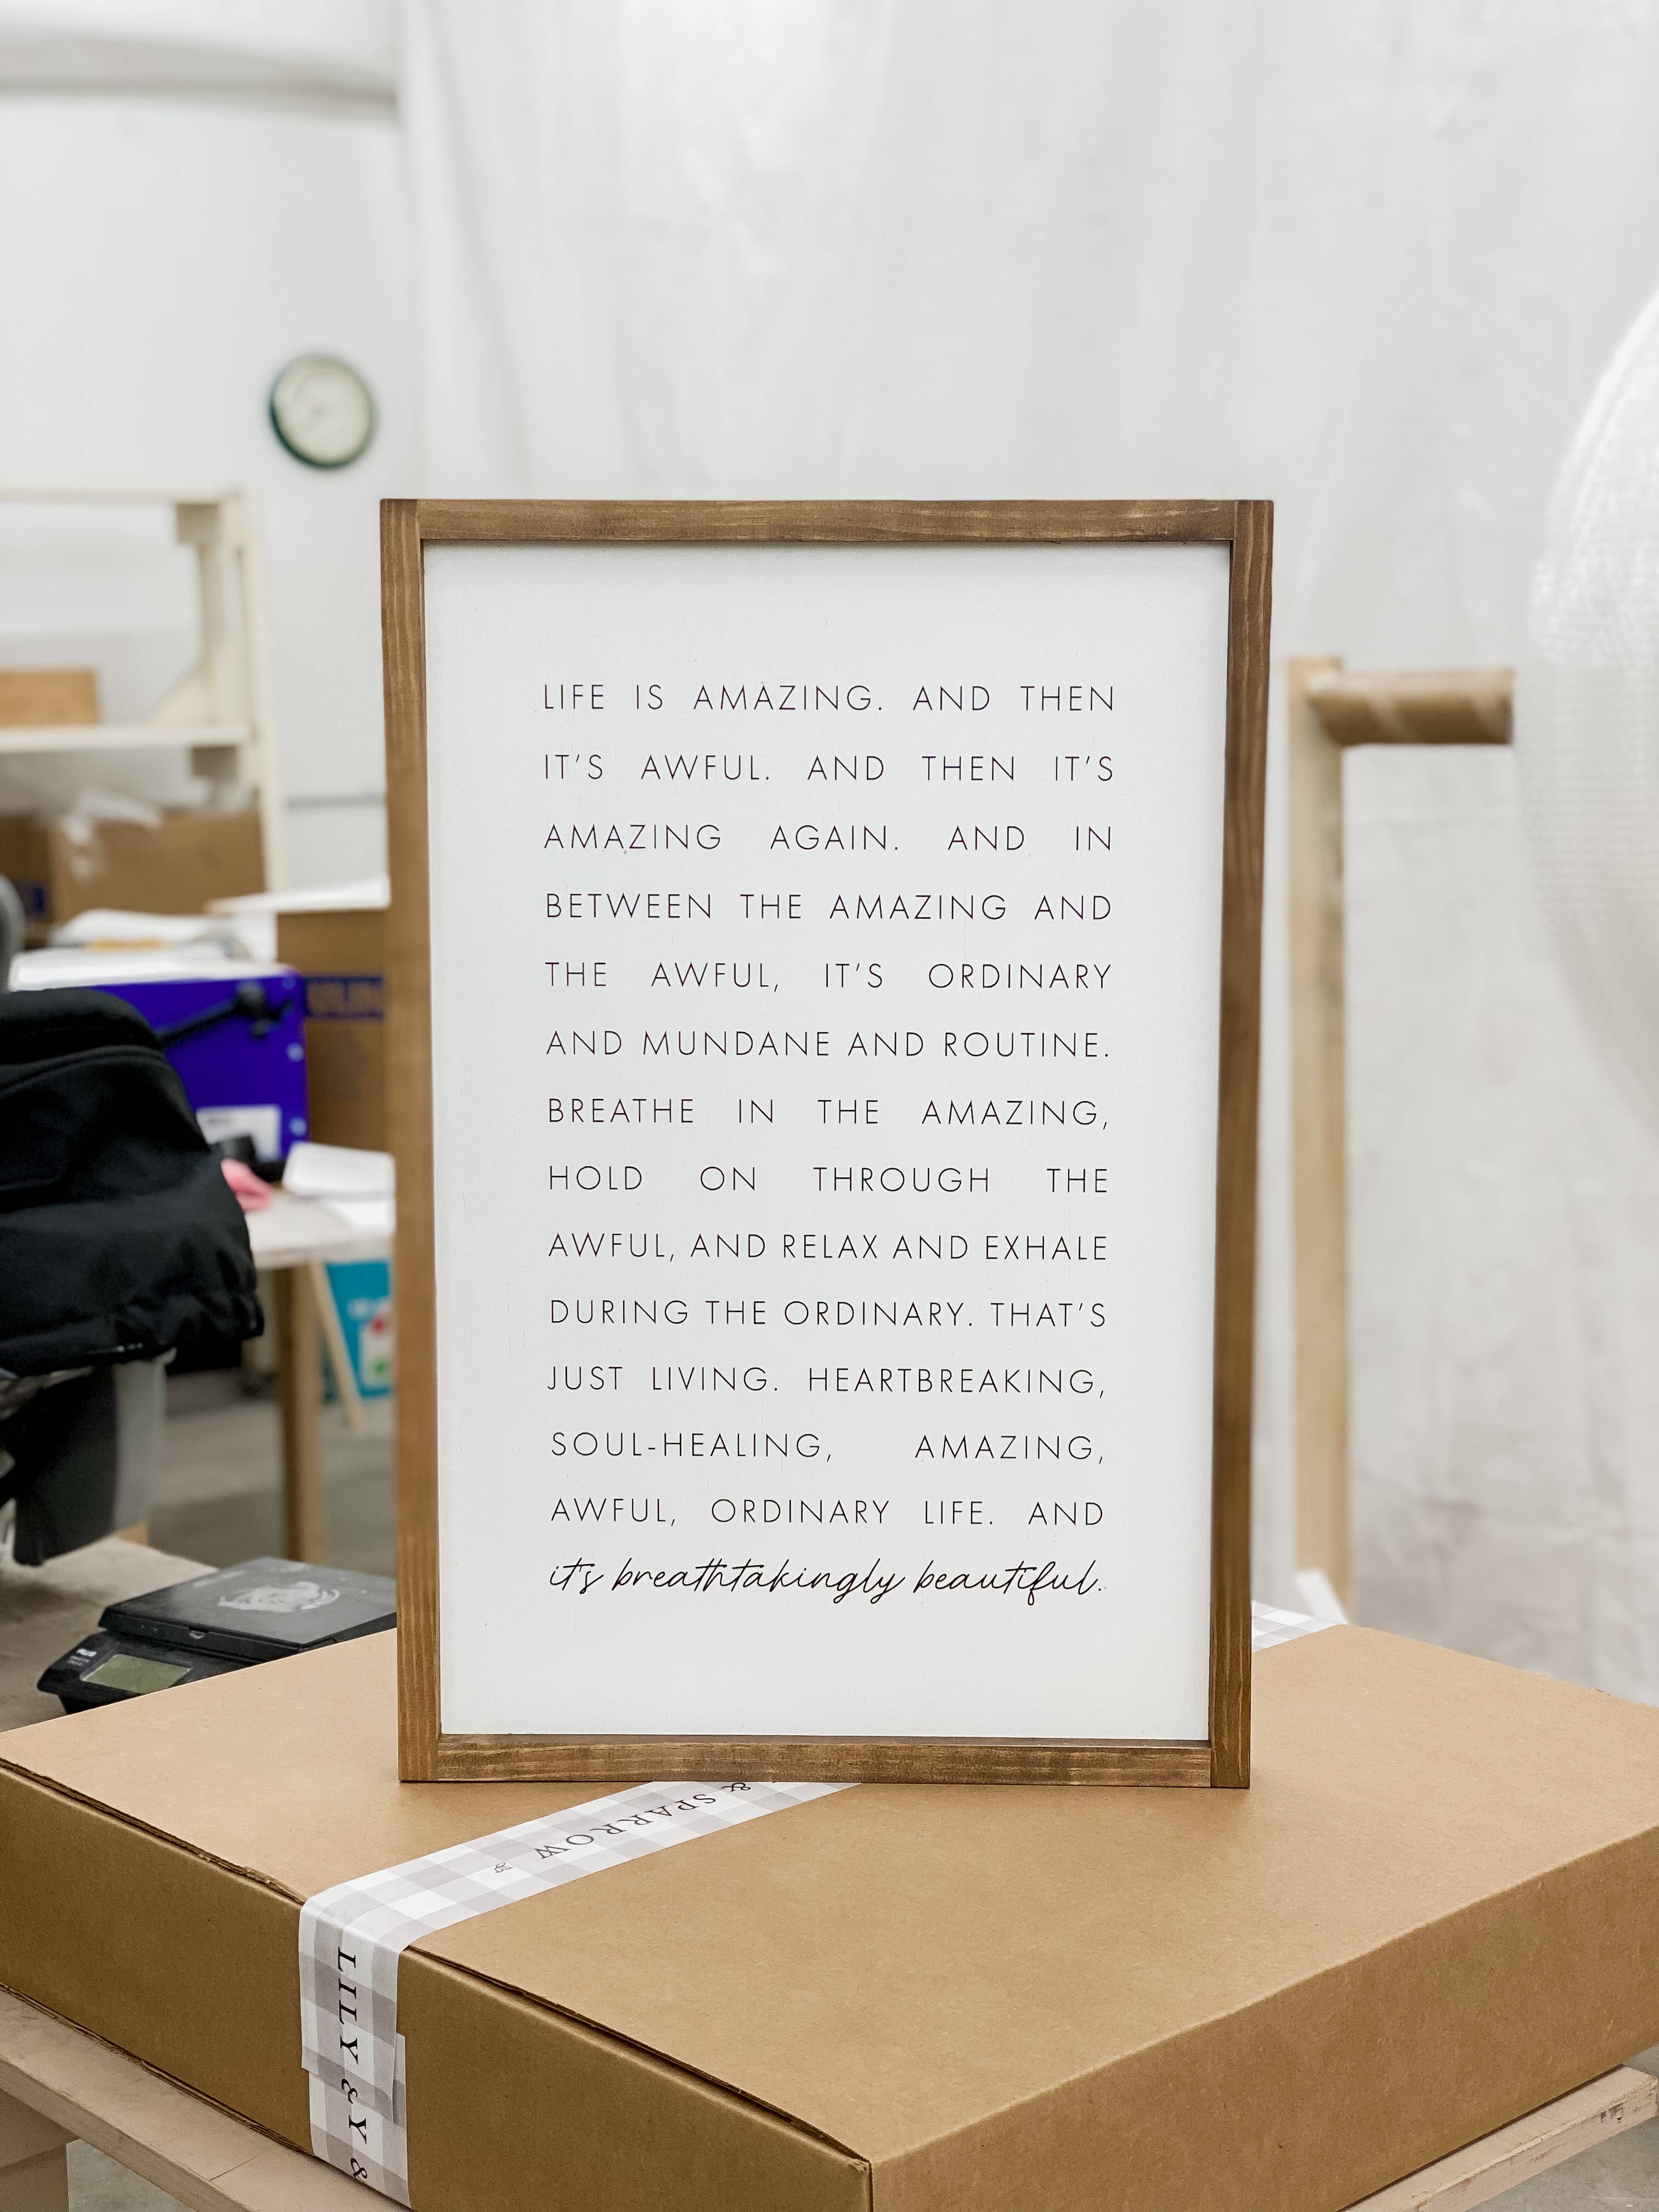 LIFE IS AMAZING. AND THEN
IT'S AWFUL. AND THEN IT'S
AMAZING AGAIN. AND IN
BETWEEN THE AMAZING AND
THE AWFUL, IT'S ORDINARY
AND MUNDANE AND ROUTINE.
BREATHE IN THE AMAZING,
HOLD ON THROUGH THE
AWFUL, AND RELAX AND EXHALE
DURING THE ORDINARY. THAT'S
JUST LIVING. HEARTBREAKING,
SOUL-HEALING, AMAZING,
AWFUL, ORDINARY LIFE. AND
it's breathtakingly beautiful.
& SPARROW
LILY &Y &